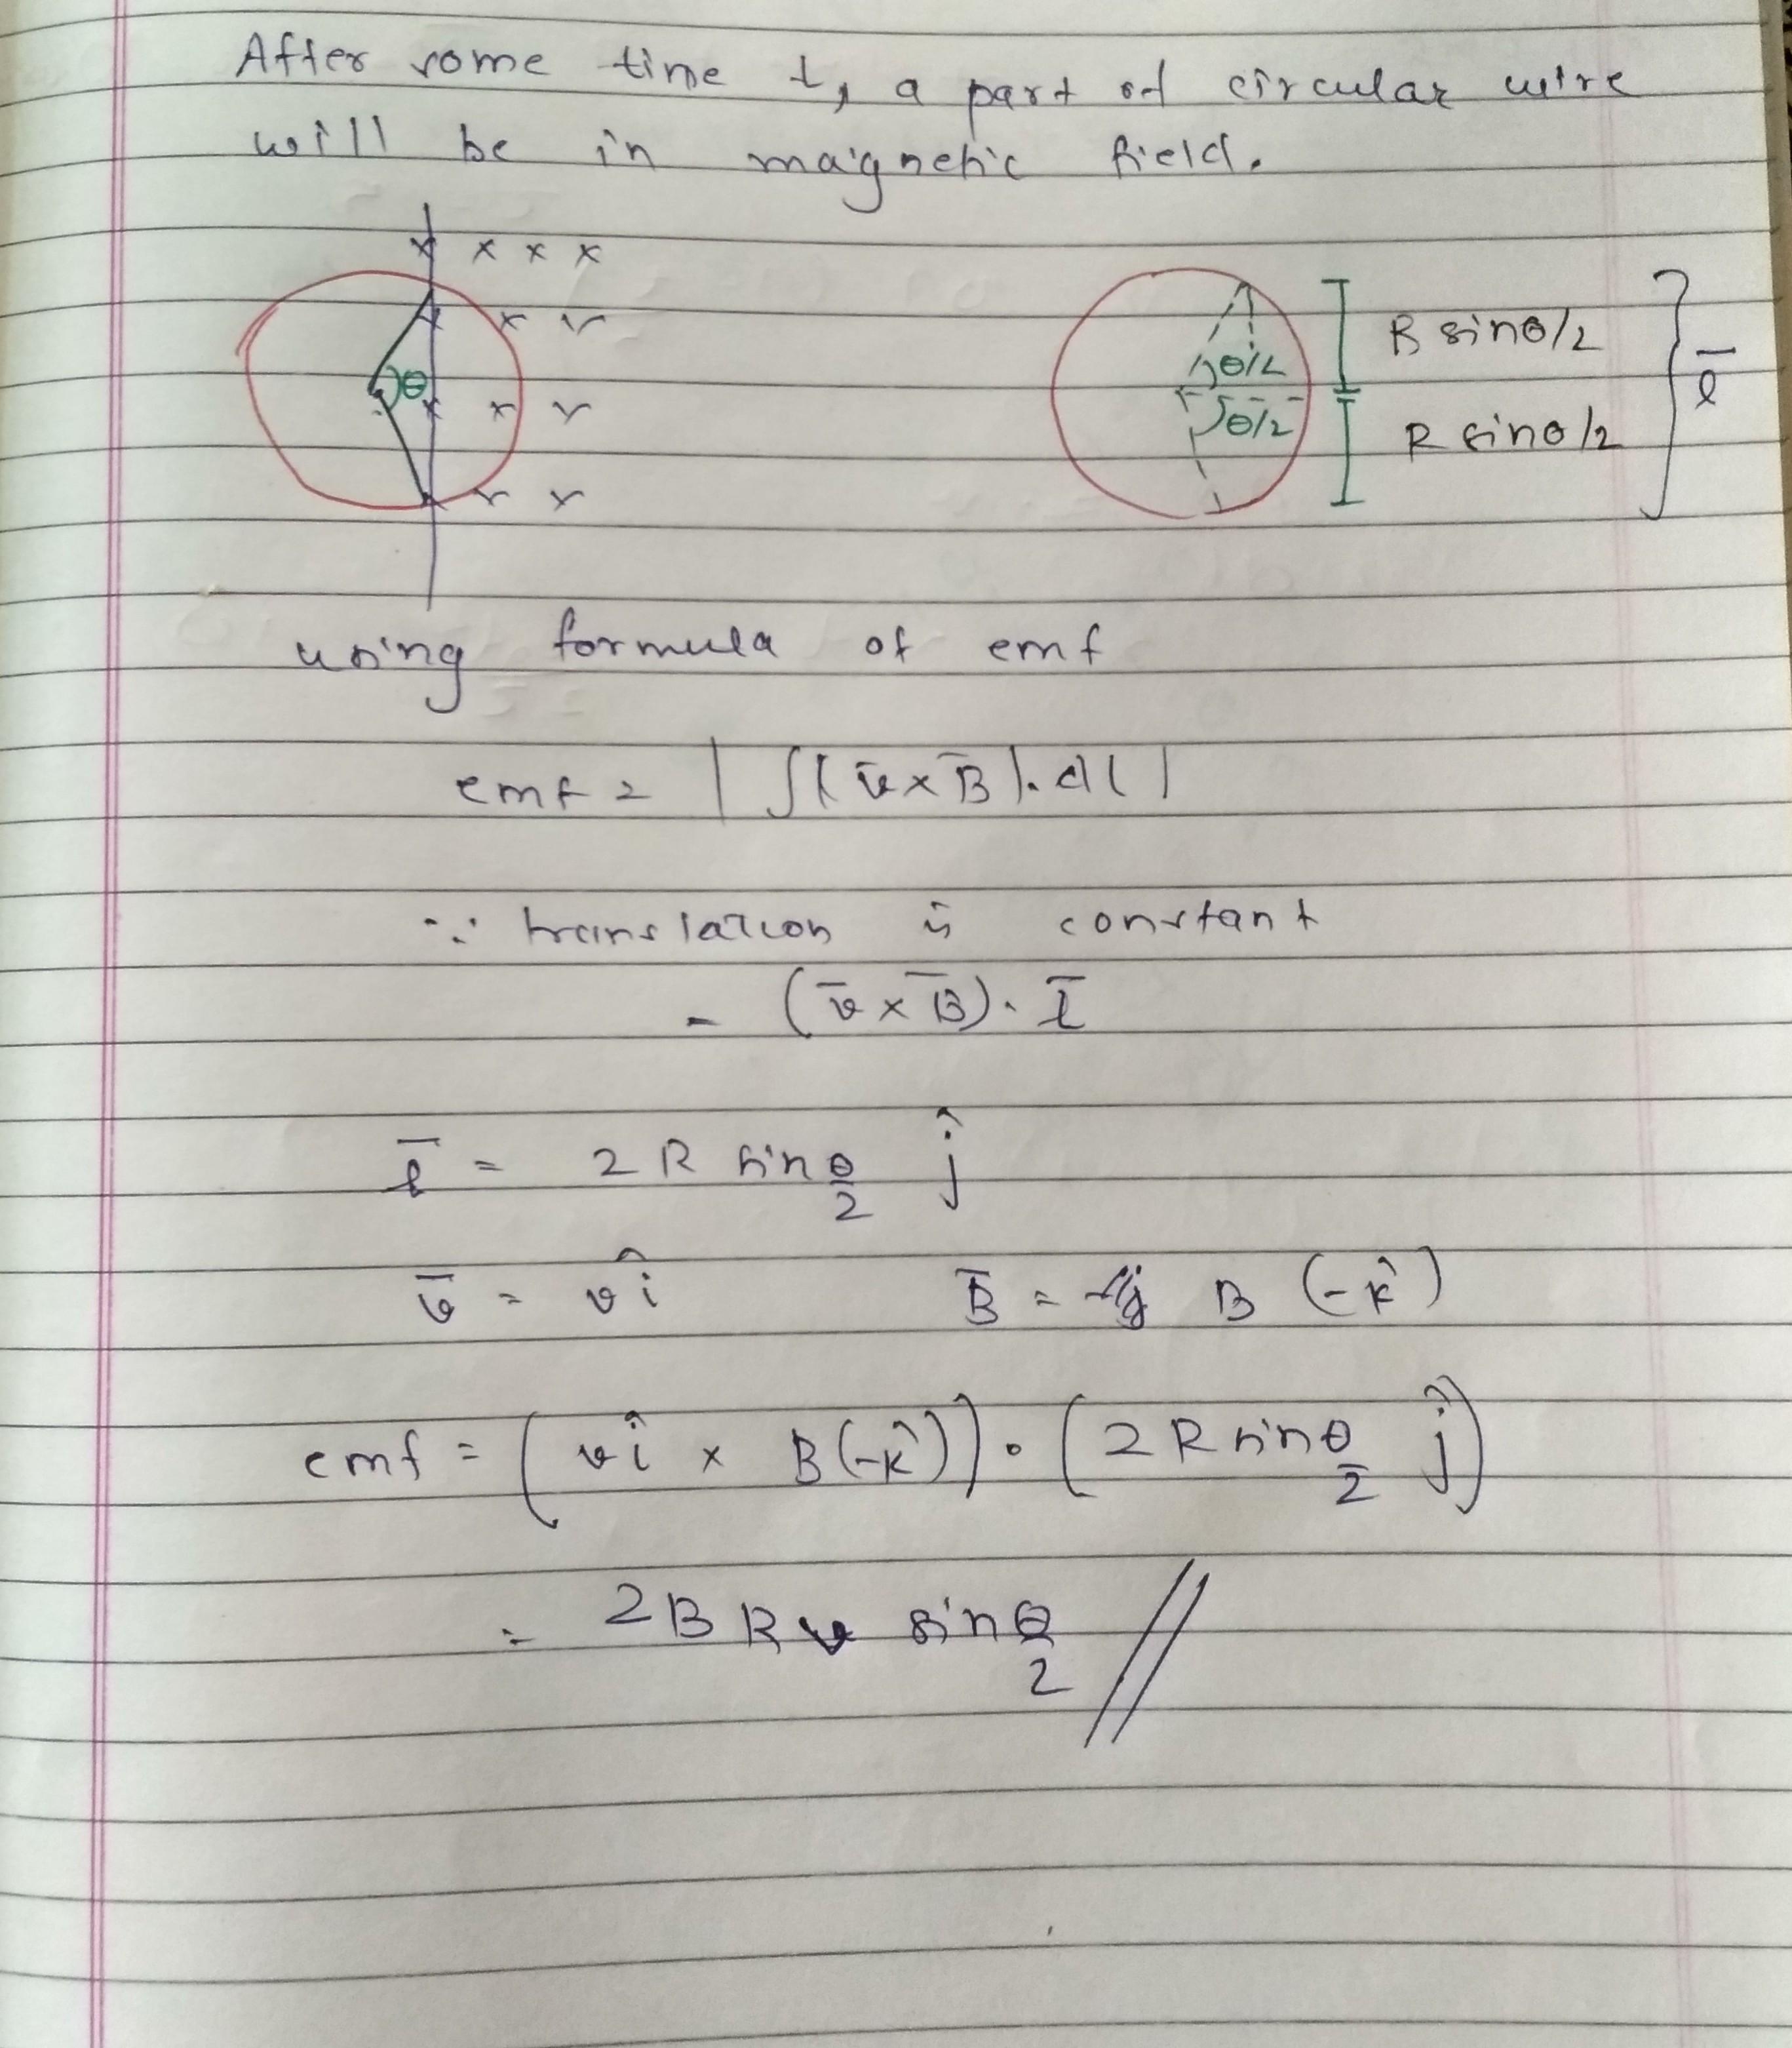 After some time t, a part of circular wire
will be in magnetic field.
x x x x
x x x
θ
x x x
x x
θ/2
θ/2
R sinθ/2
R sinθ/2
l̄
using formula of emf
emf = | ∫(v̄ × B̄).dl |
∵ translation is constant
= (v̄ × B̄). l̄
l̄ = 2 R sin θ/2 ĵ
v̄ = v î B̄ = B (-k̂)
emf = ( v î × B(-k̂) ) . ( 2 R sin θ/2 ĵ )
= 2 B R v sin θ/2 //